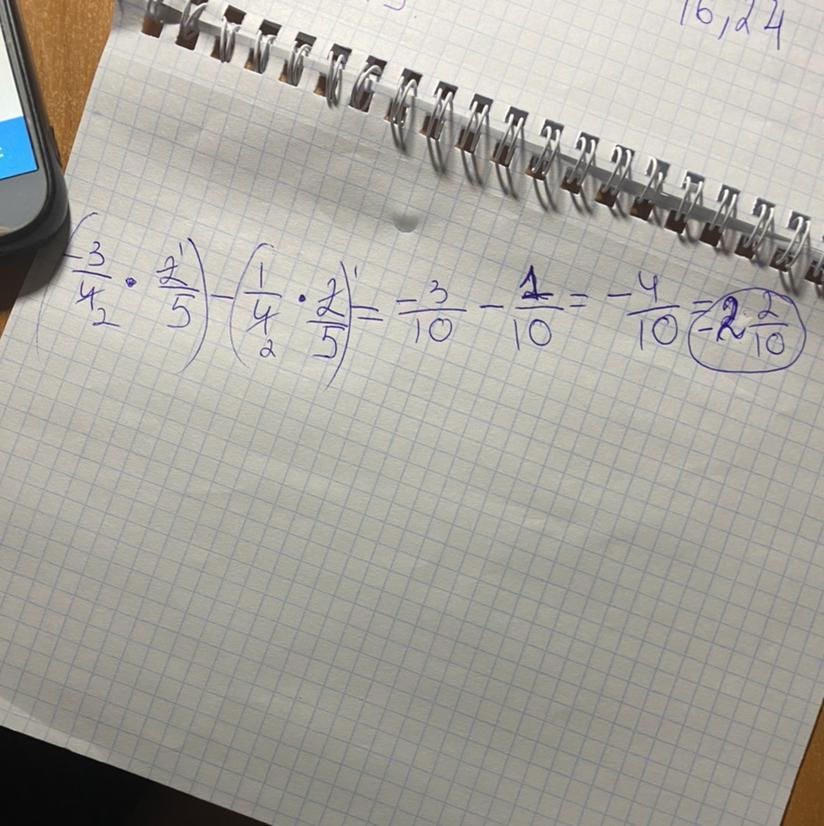 16,24
(-3/4 2 · 2 1/5) - (1/4 2 · 2 1/5) = -3/10 - 1/10 = -4/10 = -2 2/10